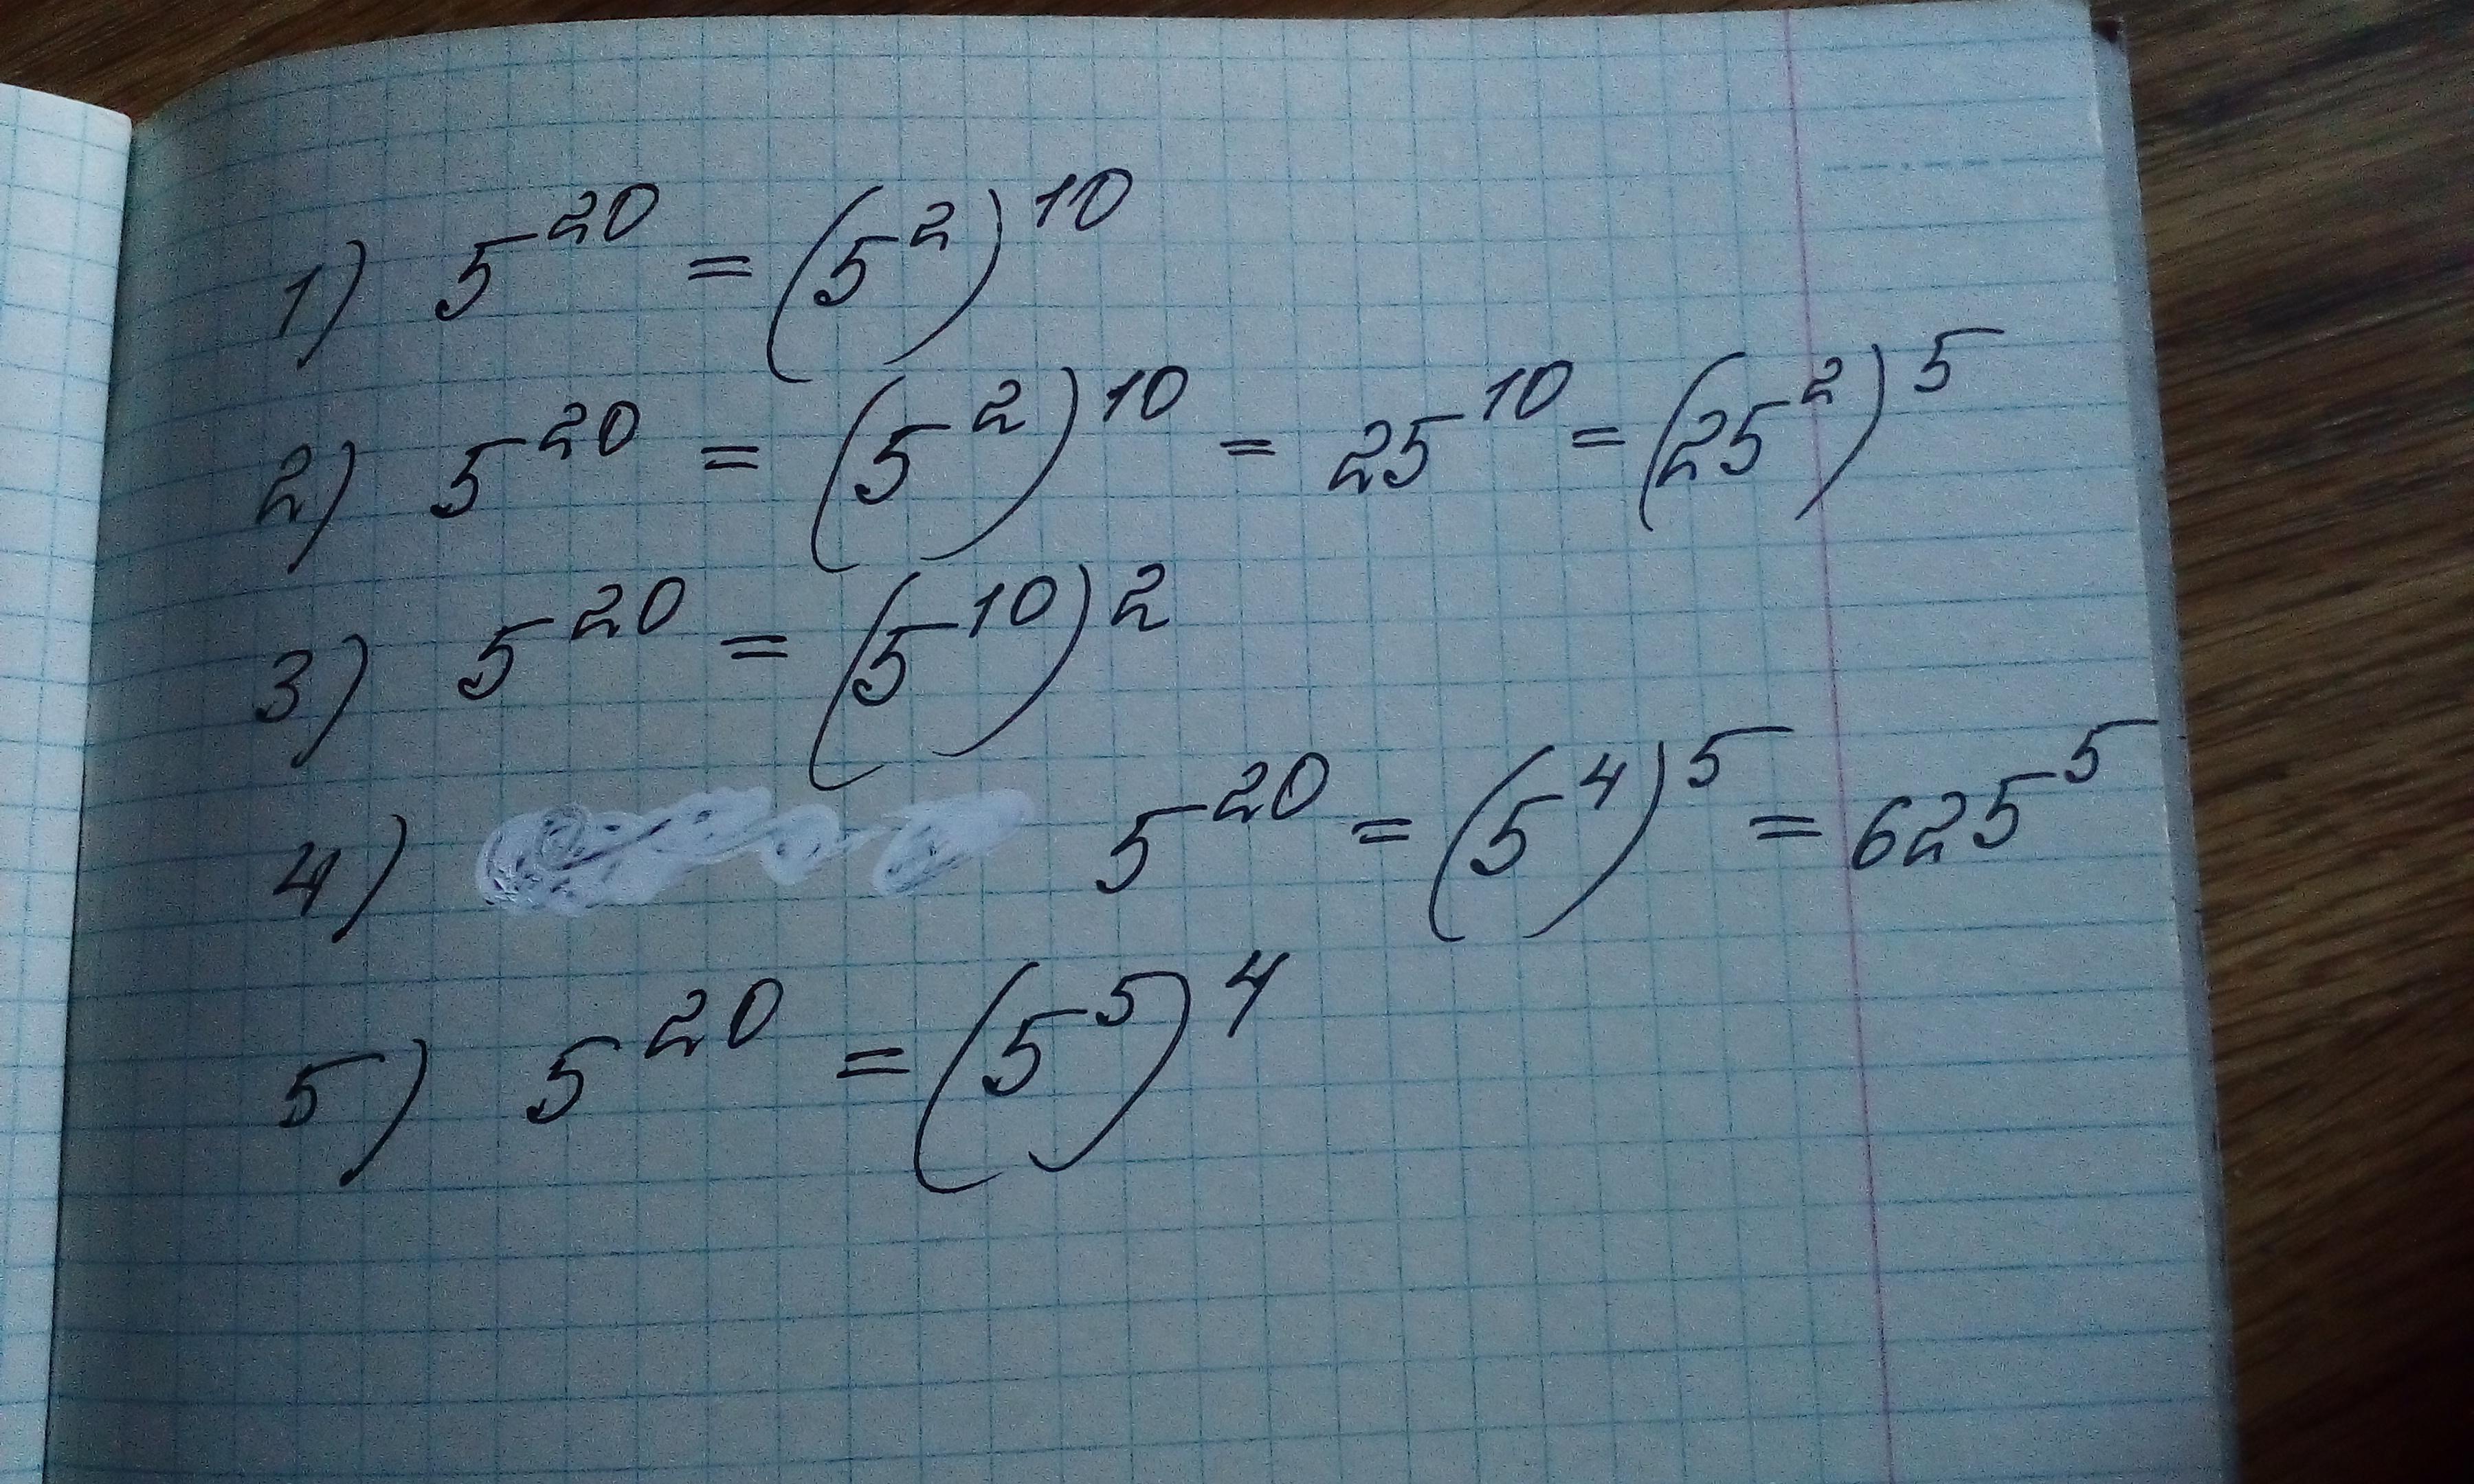 1) 5^20 = (5^2)^10
2) 5^20 = (5^2)^10 = 25^10 = (25^2)^5
3) 5^20 = (5^10)^2
4) 5^20 = (5^4)^5 = 625^5
5) 5^20 = (5^5)^4